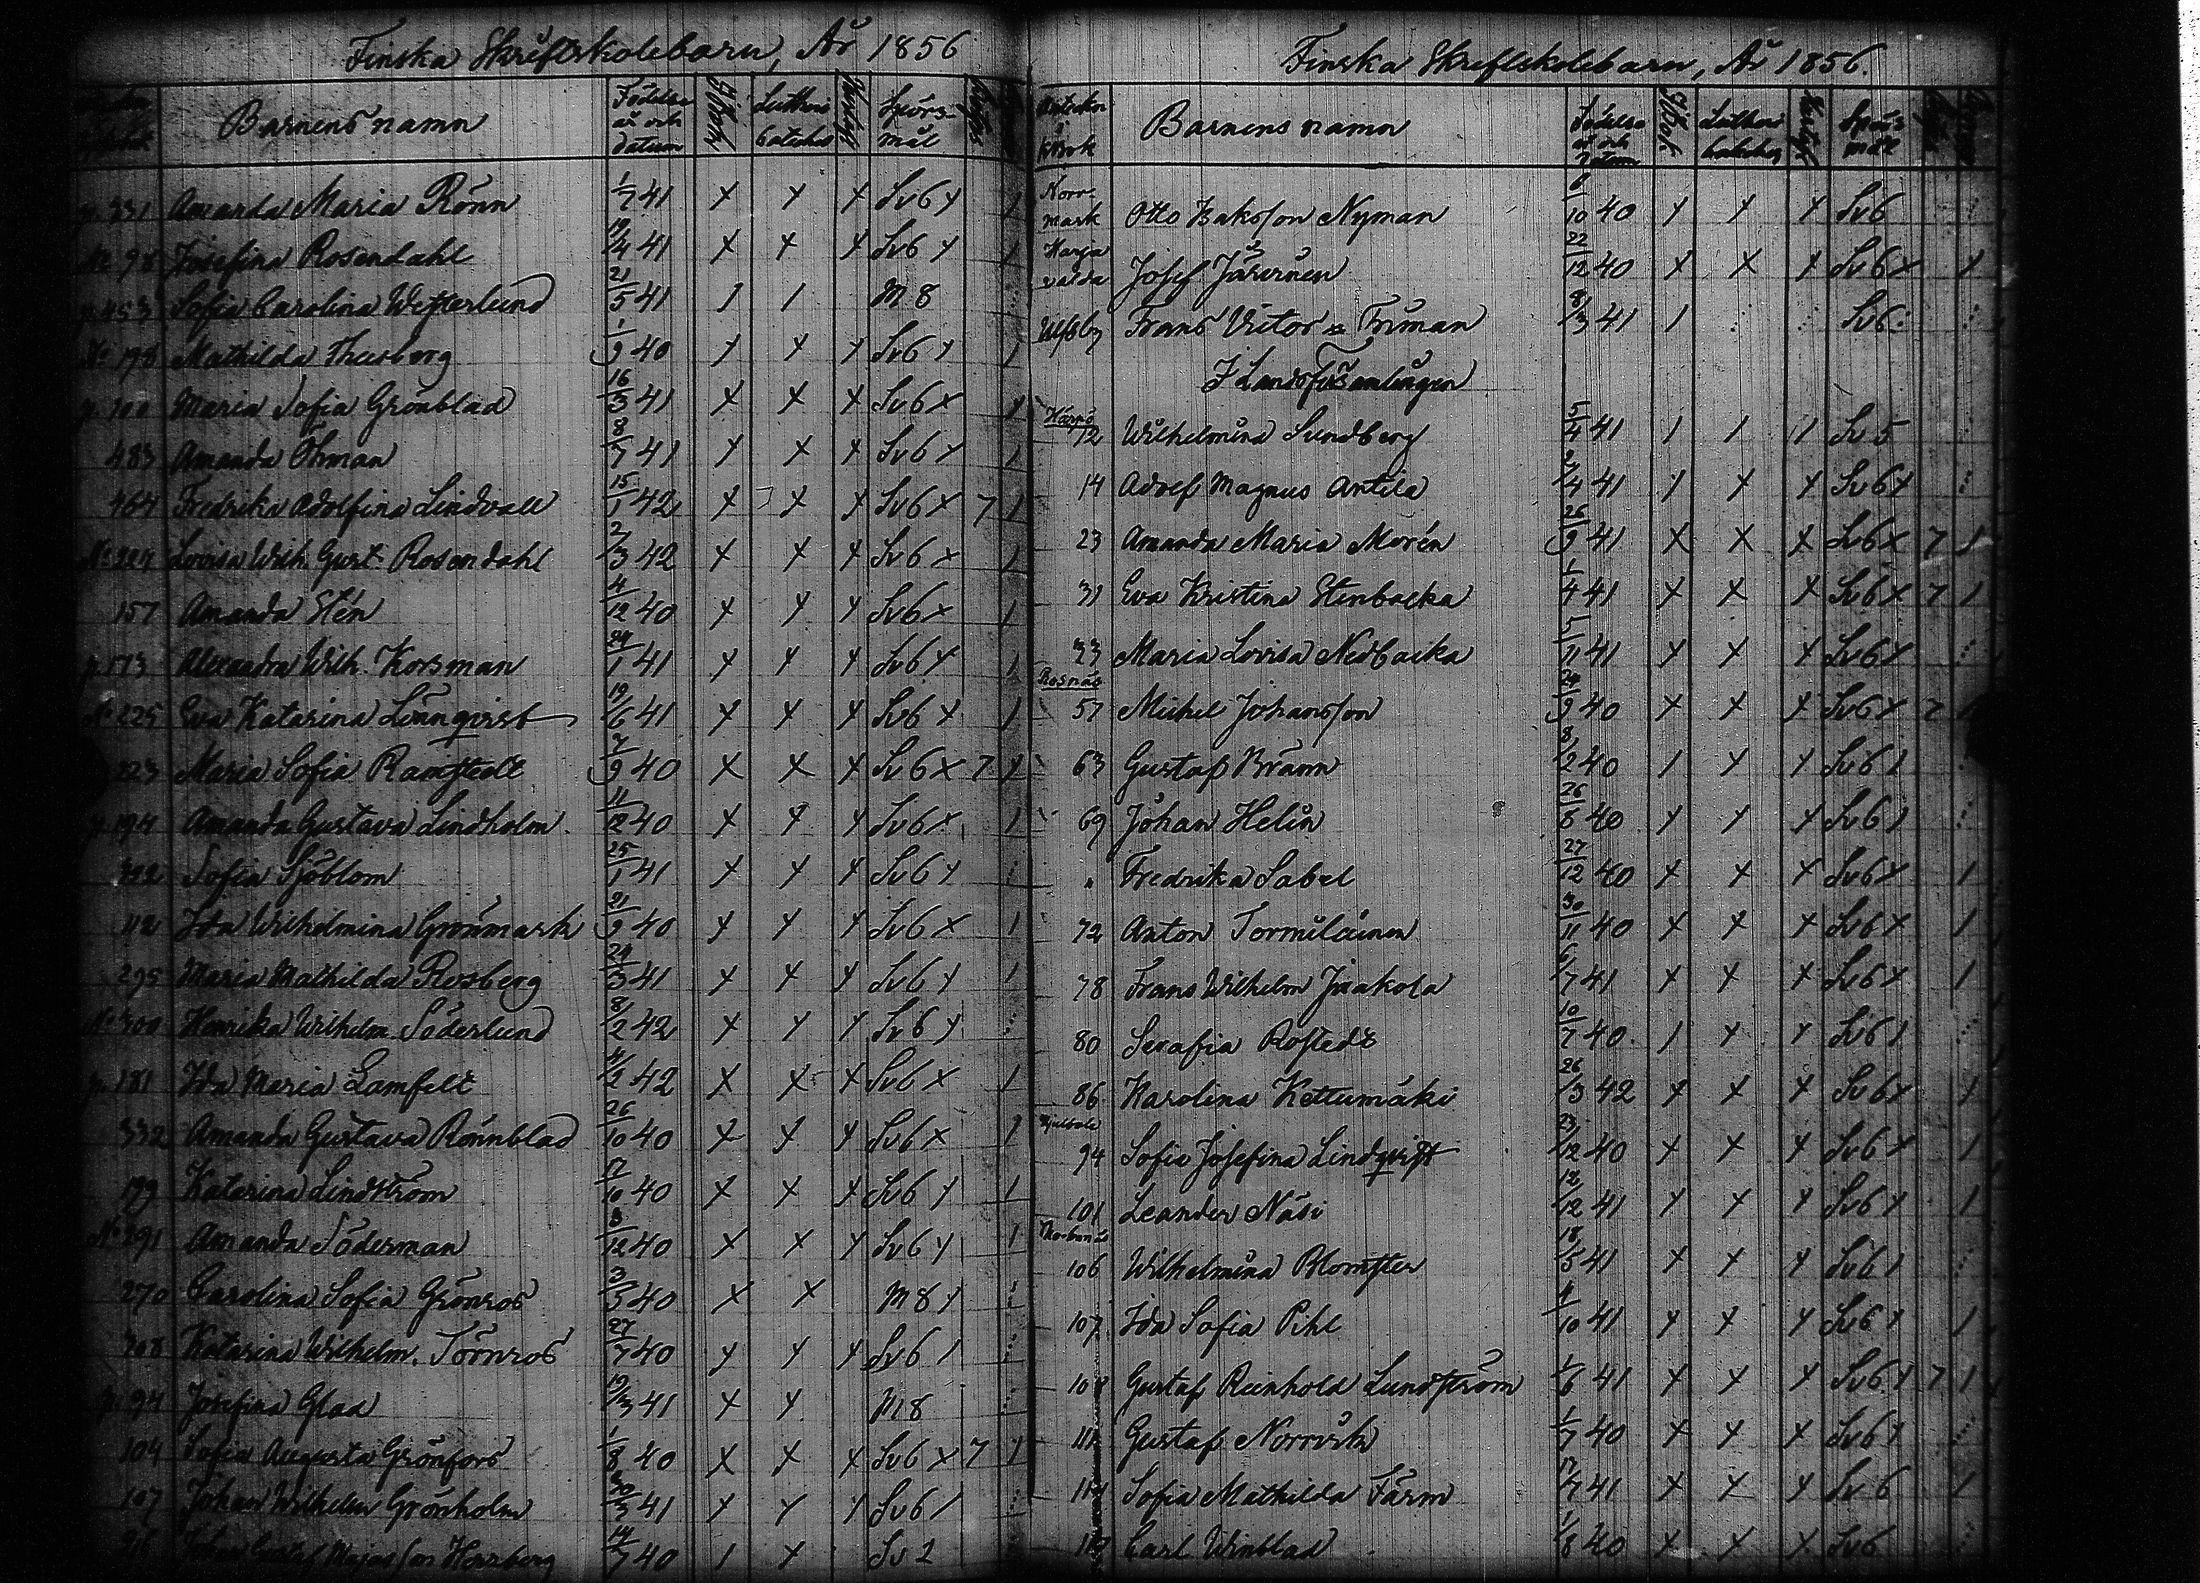 Finska Skriftskolebarn, År 1856
Barnens namn Födelse år och datum Lutheri Spörsmål
p. 331 Amanda Maria Rönn 1/7 41 x x x Sv 6 x 1
No 98 Josefina Rosendahl 19/4 41 x x x Sv 6 x 1
p. 453 Sofia Carolina Westerlund 21/5 41 1 1 M 8
No 198 Mathilda Thusberg 1/9 40 x x x Sv 6 x 1
p. 100 Maria Sofia Grönblad 16/3 41 x x x Sv 6 x 1
483 Amanda Öhman 8/7 41 x x x Sv 6 x 1
464 Fredrika Adolfina Lindvall 15/1 42 x x x Sv 6 x 7 1
Lovisa Wilh. Gust. Rosendahl 2/3 42 x x x Sv 6 x 1
157 Amanda Stén 4/12 40 x x x Sv 6 x 1
p. 173 Alexandra Wilh. Korsman 24/1 41 x x x Sv 6 x 1
No 225 Eva Katarina Lönnqvist 19/6 41 x x x Sv 6 x 1
223 Maria Sofia Ramstedt 7/9 40 x x x Sv 6 x 7 1
p. 194 Amanda Gustava Lindholm 11/12 40 x x x Sv 6 x 1
322 Sofia Sjöblom 25/1 41 x x x Sv 6 x
112 Ida Wilhelmina Grönmark 21/9 40 x x x Sv 6 x 1
295 Maria Mathilda Rosberg 24/3 41 x x x Sv 6 x 1
No 300 Henrika Wilhelm. Söderlund 8/2 42 x x x Sv 6 x
p. 181 Ida Maria Lamfelt 4/2 42 x x x Sv 6 x 1
332 Amanda Gustava Rönnblad 26/10 40 x x x Sv 6 x 1
199 Katarina Lindström 17/10 40 x x x Sv 6 x 1
No 291 Amanda Söderman 8/12 40 x x x Sv 6 x 1
270 Carolina Sofia Grönros 3/5 40 x x M 8 x
308 Katarina Wilhelm. Törnros 27/7 40 x x x Sv 6 1
p. 94 Josefina Glad 19/3 41 x x M 8
104 Sofia Augusta Grönfors 1/8 40 x x x Sv 6 x 7 1
107 Johan Wilhelm Grönholm 30/3 41 x x x Sv 6 1
Johan Gustaf Herrberg 14/7 40 1 x Sv 2
Finska Skriftskolebarn, År 1856.
Barnens namn Födelse år och datum Spörsmål
Norrmark Otto Isaksson Nyman 6/10 40 x x x Sv 6
Harjavalda Josef Järvinen 22/12 40 x x x Sv 6 x 1
Ulfsby Frans Victor Friman 8/3 41 1 Sv 6
I Landsförsamlingen
12 Wilhelmina Sundberg 5/4 41 1 1 1 Sv 5
14 Adolf Magnus Antila 41 x x x Sv 6 x
23 Amanda Maria Morén 26/9 41 x x x Sv 6 x 7 1
31 Eva Kristina Stenbacka 1/4 41 x x x Sv 6 x 7 1
33 Maria Lovisa Nedbacka 41 x x x Sv 6 x
Rosnäs
51 Mickel Johansson 24/9 40 x x x Sv 6 x 7 1
63 Gustaf Brann 8/2 40 1 x x Sv 6 1
69 Johan Helin 26/6 40 x x x Sv 6 1
" Fredrika Sabel 27/12 40 x x x Sv 6 x 1
72 Anton Tormiläinen 30/11 40 x x x Sv 6 x 1
78 Frans Wilhelm Jaakola 6/7 41 x x x Sv 6 x 1
80 Serafia Rostedt 10/7 40 1 x x Sv 6 1
86 Karolina Kettumäki 26/3 42 x x x Sv 6 x 1
94 Sofia Josefina Lindqvist 23/12 40 x x x Sv 6 x 1
101 Leander Näsi 12/12 41 x x x Sv 6 x 1
106 Wilhelmina Blomster 18/5 41 x x x Sv 6 1
107 Ida Sofia Pihl 4/10 41 x x x Sv 6 x 1
108 Gustaf Reinhold Lundström 1/6 41 x x x Sv 6 x 7 1
111 Gustaf Norrvik 1/7 40 x x x Sv 6 x
114 Sofia Mathilda Färm 17/7 41 x x x Sv 6 1
Carl Winblad 1/8 40 x x x Sv 6